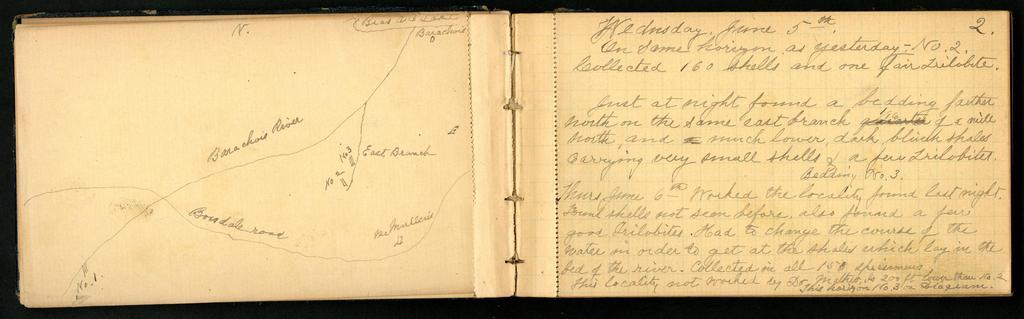 N.
Bras d'Or Lake
Barachois
E
Barachois River
East Branch
No 2
No 3
Boisdale road
McMullens
No. 1.
2.
Wednesday, June 5th.
On same horizon as yesterday - No. 2.
Collected 160 shells and one fair Trilobite.
Just at night found a bedding farther
north on the same east branch, of a mile
north, and much lower, dark, bluish shales
carrying very small shells & a few Trilobites.
Bedding No. 3.
Thurs. June 6th Worked the locality found last night.
Found shells not seen before, also found a few
good Trilobites. Had to change the course of the
water in order to get at the shales which lay in the
bed of the river. Collected in all 150 specimens
This locality not worked by Dr. Matthew is 200 ft lower than No. 2
This horizon No. 3 on Diagram.